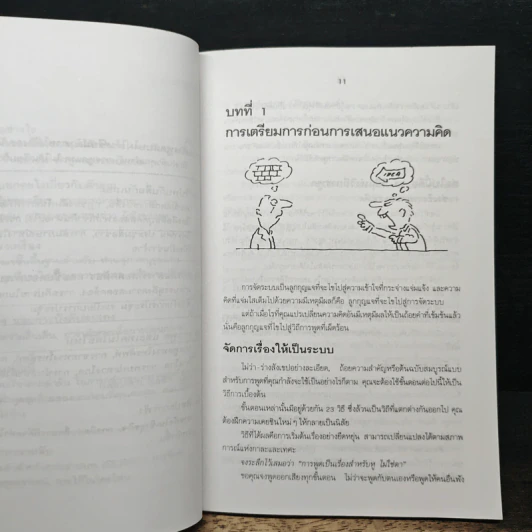 11
บทที่ 1
การเตรียมการก่อนการเสนอแนวความคิด
IDEA
การจัดระบบเป็นลูกกุญแจที่จะไขไปสู่ความเข้าใจที่กระจ่างแจ่มแจ้ง และความ
คิดที่แจ่มใสเต็มไปด้วยความมีเหตุมีผลก็คือ ลูกกุญแจที่จะไขไปสู่การจัดระบบ
แต่ถ้าเมื่อไรที่คุณแปรเปลี่ยนความคิดอันมีเหตุมีผลให้เป็นถ้อยคำที่เข้มข้นแล้ว
นั่นคือลูกกุญแจที่จะไขไปสู่วิธีการพูดที่เผ็ดร้อน
จัดการเรื่องให้เป็นระบบ
ไม่ว่า ร่างสังเขปอย่างละเอียด, ถ้อยความสำคัญหรือต้นฉบับสมบูรณ์แบบ
สำหรับการพูดที่คุณกำลังจะใช้เป็นอย่างไรก็ตาม คุณจะต้องใช้ขั้นตอนต่อไปนี้ให้เป็น
วิธีการเบื้องต้น
ขั้นตอนเหล่านั้นมีอยู่ด้วยกัน 23 วิธี ซึ่งล้วนเป็นวิธีที่แตกต่างกันออกไป คุณ
ต้องฝึกความเคยชินใหม่ๆ ให้กลายเป็นนิสัย
วิธีที่ได้ผลคือการเริ่มต้นเรื่องอย่างยืดหยุ่น สามารถเปลี่ยนแปลงได้ตามสภาพ
การณ์แห่งกาละและเทศะ
จงระลึกไว้เสมอว่า "การพูดเป็นเรื่องสำหรับหู ไม่ใช่ตา"
ขอคุณจงพูดออกเสียงทุกขั้นตอน ไม่ว่าจะพูดกับตนเองหรือพูดให้คนอื่นฟัง